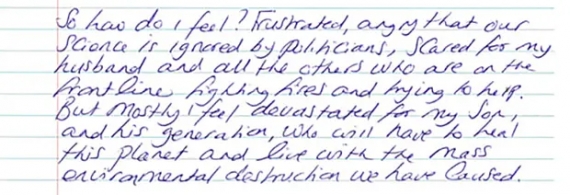 So how do I feel? Frustrated, angry that our
science is ignored by politicians, scared for my
husband and all the others who are on the
frontline fighting fires and trying to help.
But mostly I feel devastated for my son,
and his generation, who will have to heal
this planet and live with the mass
environmental destruction we have caused.